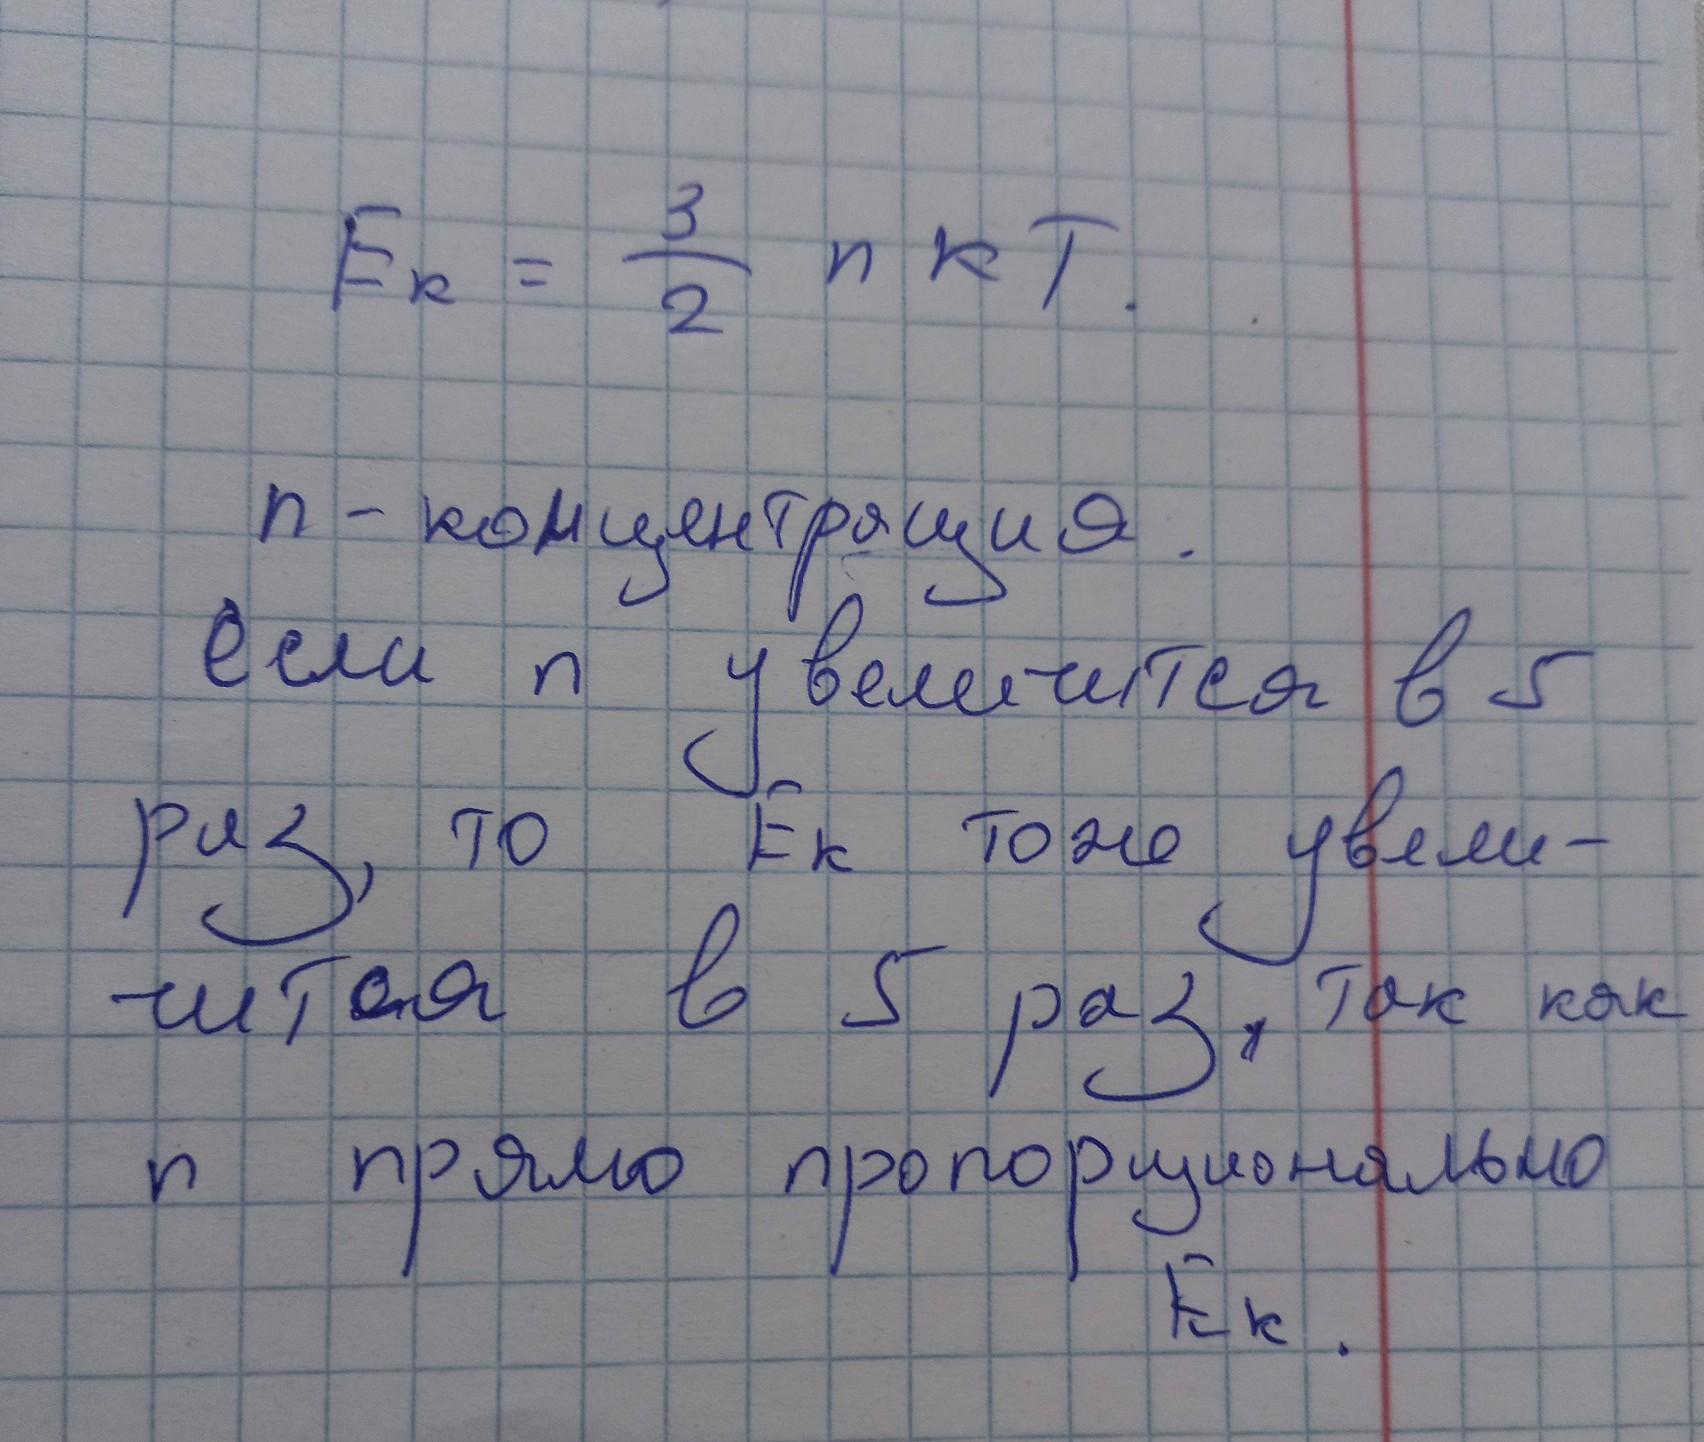 Eк = 3/2 n к T.
n - концентрация.
если n увеличится в 5
раз, то Eк тоже увели-
чится в 5 раз, так как
n прямо пропорционально
Eк.